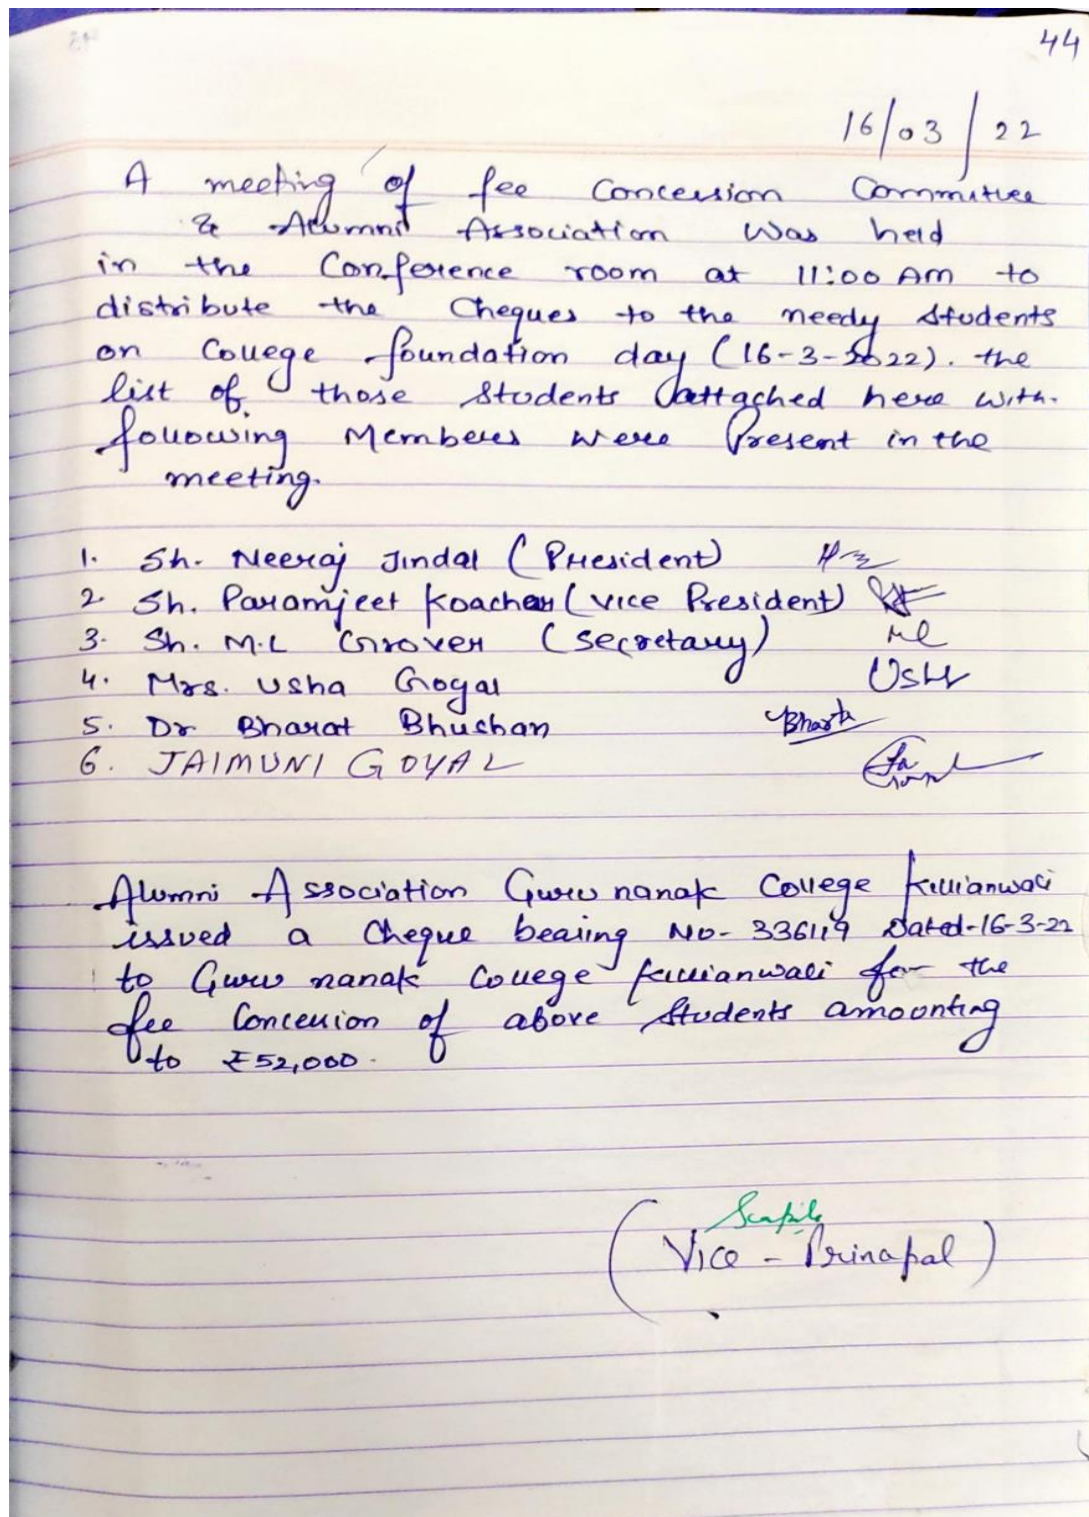 44
16/03/22
A meeting of fee Concession Committee
& Alumni Association was held
in the Conference room at 11:00 AM to
distribute the Cheques to the needy students
on College foundation day (16-3-2022). the
list of those students attached here with.
following Members were Present in the
meeting.
1. Sh. Neeraj Jindal (President)
2. Sh. Paramjeet Koacher (Vice President)
3. Sh. M.L Grover (Secretary)
4. Mrs. Usha Goyal
5. Dr Bharat Bhushan
6. JAIMUNI GOYAL
Alumni Association Guru nanak College Killianwali
issued a Cheque bearing No- 336119 Dated-16-3-22
to Guru nanak College Killianwali for the
fee Concession of above Students amounting
to ₹52,000.
(Vice-Principal)